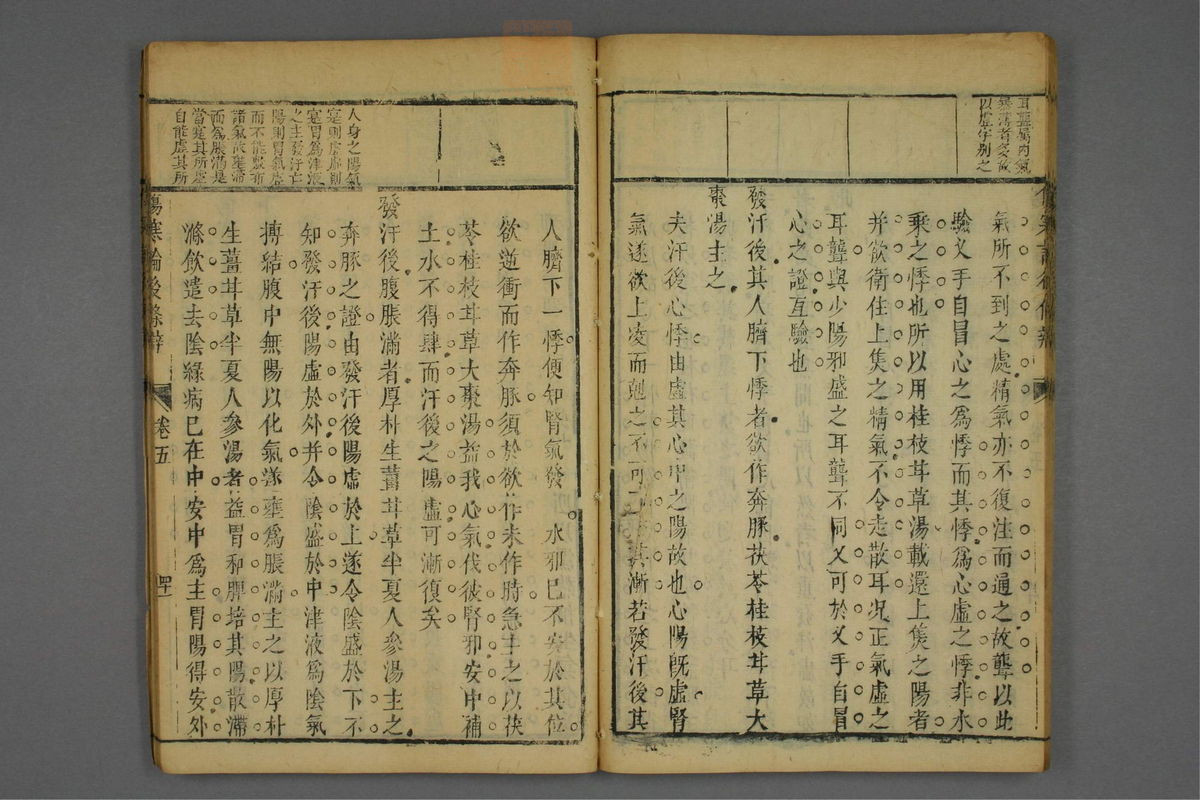 耳聾屬內氣
暴薄者多故
以虛字別之
氣所不到之處精氣亦不復注而通之故聾以此
驗叉手自冒心之爲悸而其悸爲心虛之悸非水
乘之悸也所以用桂枝甘草湯載還上焦之陽者
并欲衛住上焦之精氣不令走散耳况正氣虛之
耳聾與少陽邪盛之耳聾不同又可於叉手自冒
心之證互驗也
發汗後其人臍下悸者欲作奔豚茯苓桂枝甘草大
棗湯主之
夫汗後心悸由虛其心中之陽故也心陽旣虛腎
氣遂欲上凌而剋之不可不防其漸若發汗後其
人身之陽氣
寔則虛虛則
寔胃爲津液
之主發汗亡
陽則胃氣虛
而不能敷布
諸氣故壅滯
而爲脹滿是
當寔其所虛
自能虛其所
人臍下一悸便知腎氣發水邪已不安於其位
欲逆衝而作奔豚須於欲作未作時急主之以茯
苓桂枝甘草大棗湯益我心氣伐彼腎邪安中補
土水不得肆而汗後之陽虛可漸復矣
發汗後腹脹滿者厚朴生薑甘草半夏人參湯主之
奔豚之證由發汗後陽虛於上遂令陰盛於下不
知發汗後陽虛於外并令陰盛於中津液爲陰氣
搏結腹中無陽以化氣遂壅爲脹滿主之以厚朴
生薑甘草半夏人參湯者益胃和脾培其陽散滯
滌飲遣去陰緣病已在中安中爲主胃陽得安外
傷寒論後條辨
卷五